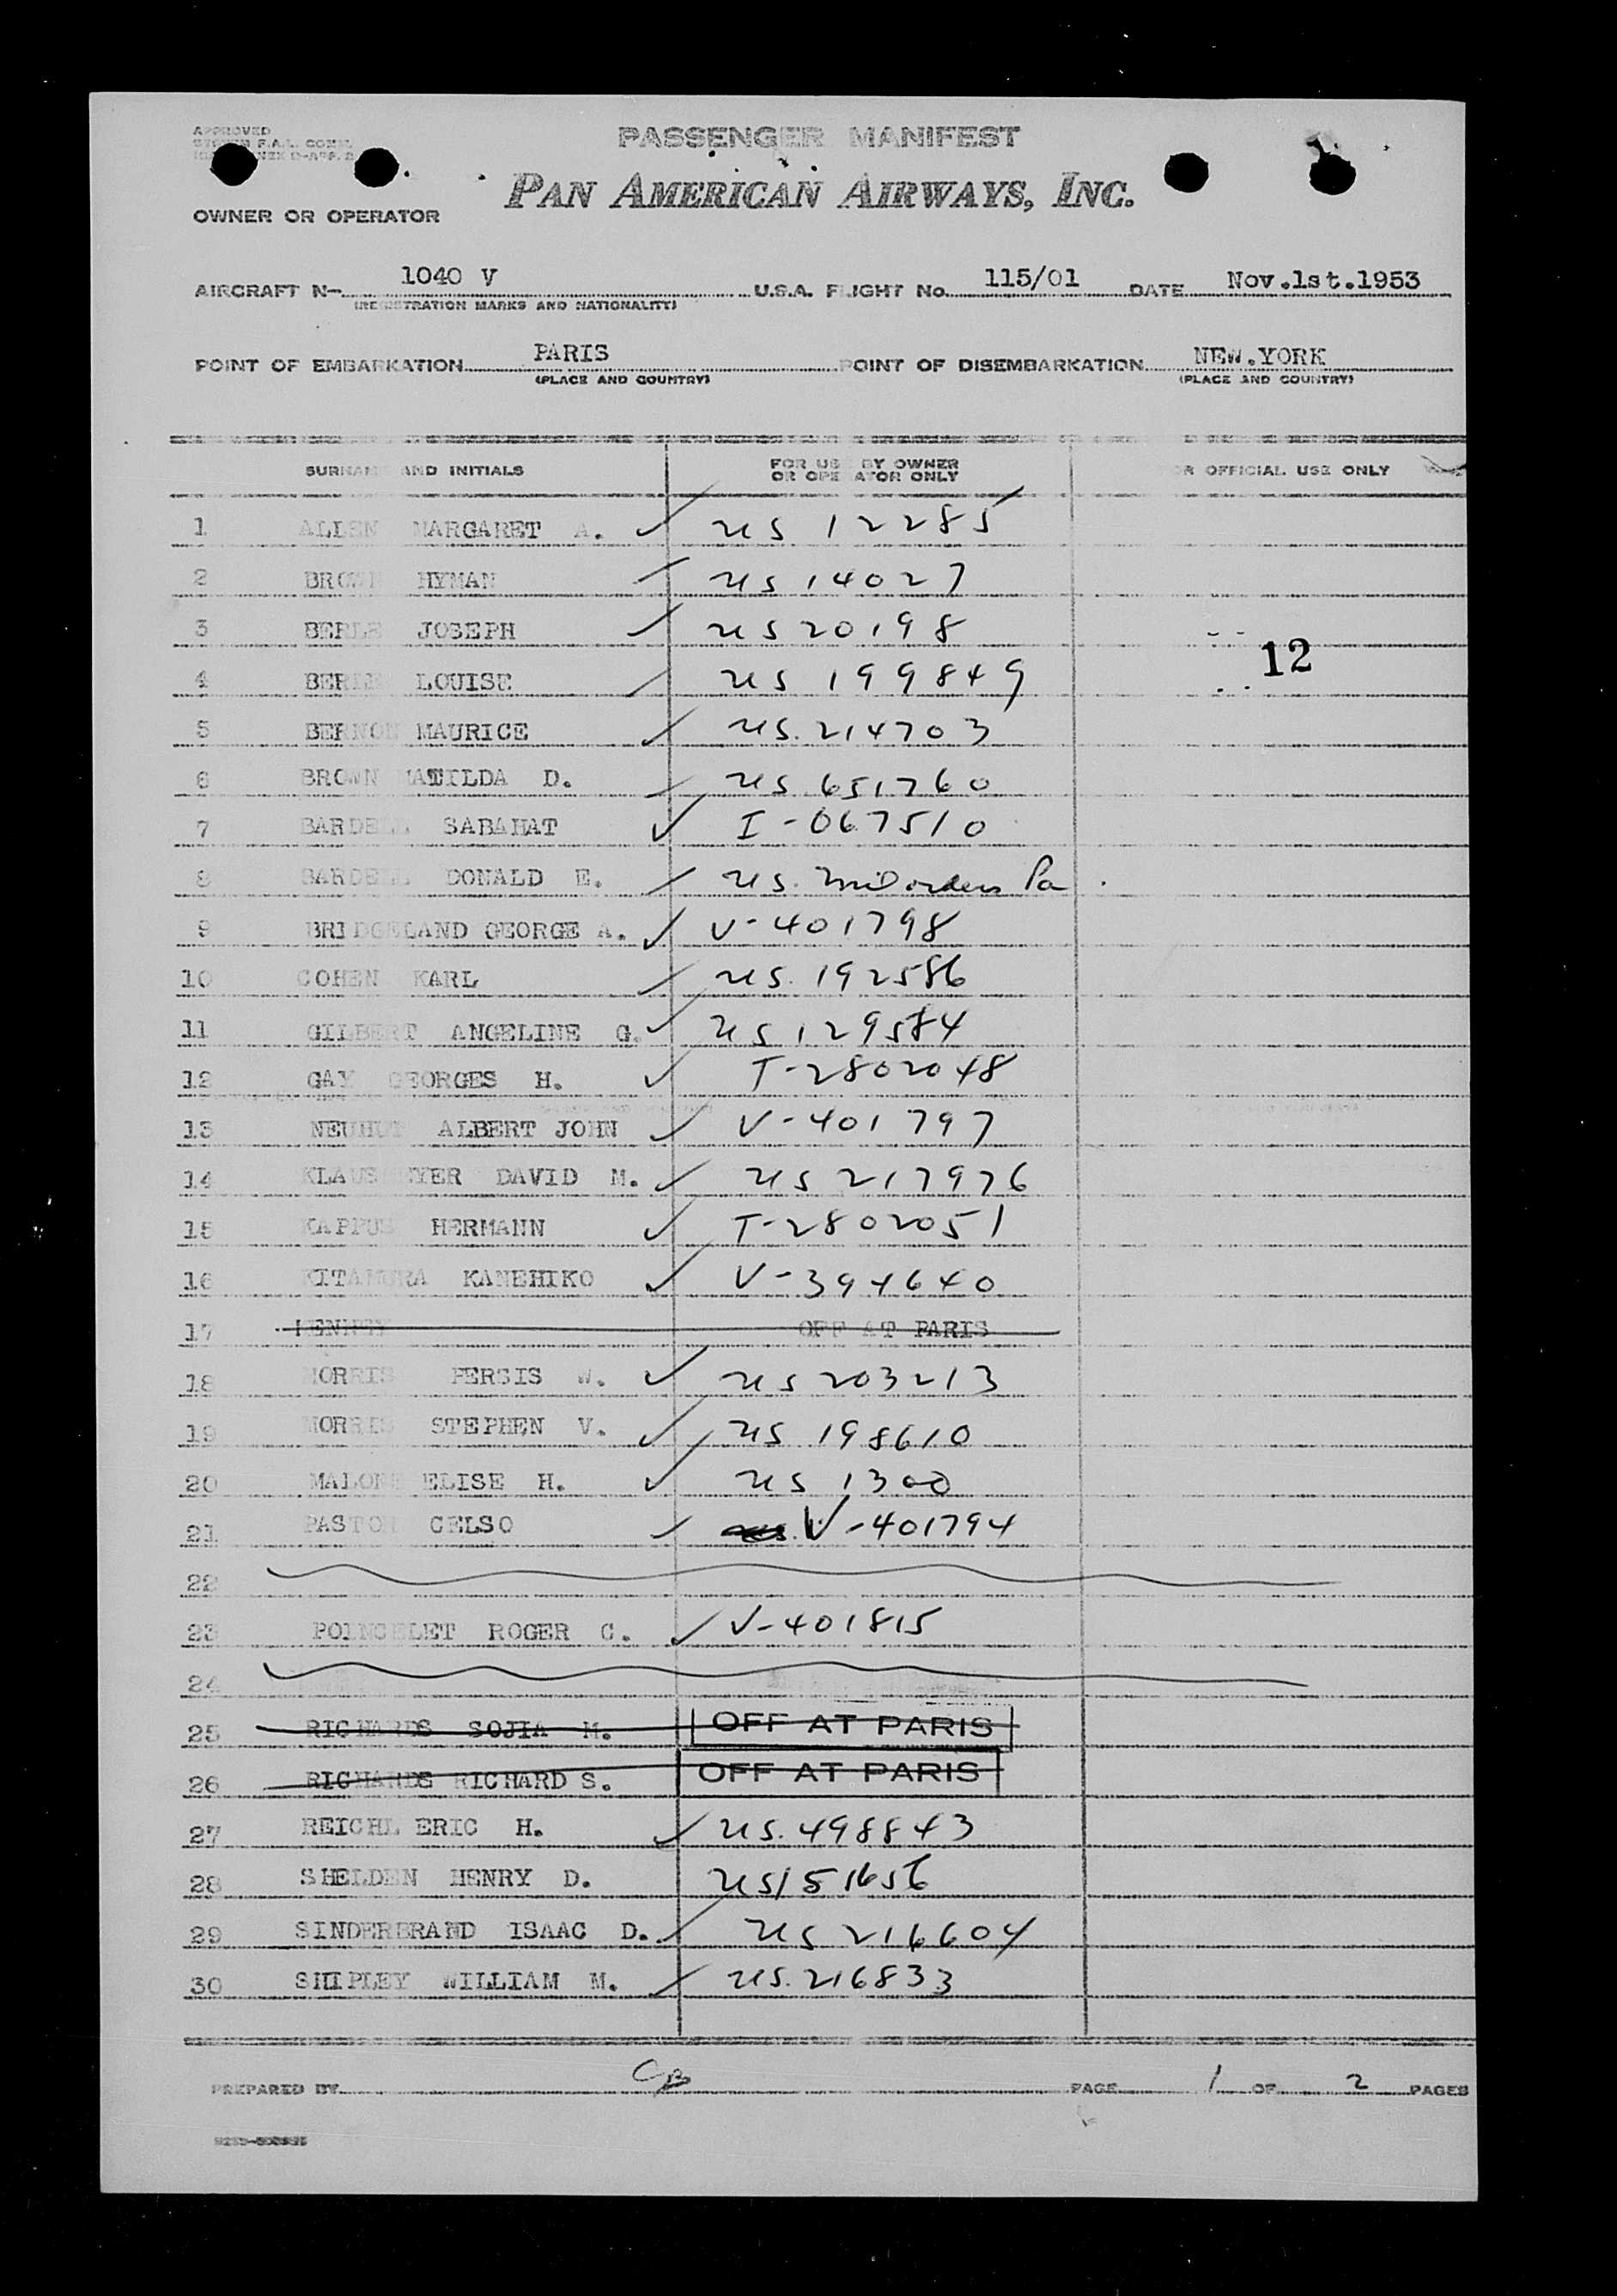 APPROVED
PASSENGER MANIFEST
PAN AMERICAN AIRWAYS, INC.
OWNER OR OPERATOR
AIRCRAFT N- 1040 V U.S.A. FLIGHT No. 115/01 DATE Nov.1st.1953
(REGISTRATION MARKS AND NATIONALITY)
POINT OF EMBARKATION PARIS POINT OF DISEMBARKATION NEW.YORK
(PLACE AND COUNTRY) (PLACE AND COUNTRY)
SURNAME AND INITIALS FOR USE BY OWNER OR OPERATOR ONLY FOR OFFICIAL USE ONLY
1 ALLEN MARGARET A. ✓ US 12285
2 BROWN HYMAN ✓ US 14027
3 BERLE JOSEPH ✓ US 20198
12
4 BERLE LOUISE ✓ US 199849
5 BERNON MAURICE ✓ US. 214703
6 BROWN MATILDA D. ✓ US 651760
7 BARDELL SABAHAT ✓ I-067510
8 BARDELL DONALD E. ✓ US.
9 BRIDGELAND GEORGE A. ✓ V-401798
10 COHEN KARL ✓ US. 192586
11 GILBERT ANGELINE G. ✓ US 129584
12 GAY GEORGES H. ✓ T-2802048
13 NEUHUT ALBERT JOHN ✓ V-401797
14 KLAUSMEYER DAVID M. ✓ US 217976
15 KAPPUS HERMANN ✓ T-2802051
16 KITAMURA KANEHIKO ✓ V-394640
17 OFF AT PARIS
18 MORRIS PERSIS W. ✓ US 203213
19 MORRIS STEPHEN V. ✓ US 198610
20 MALONE ELISE H. ✓ US 1300
21 PASTOR CELSO ✓ V-401794
22
23 POINCELET ROGER C. ✓ V-401815
24
25 RICHARDS SOJIA M. OFF AT PARIS
26 RICHARDS RICHARD S. OFF AT PARIS
27 REICHL ERIC H. ✓ US. 498843
28 SHELDEN HENRY D. US 151656
29 SINDERBRAND ISAAC D. ✓ US 216604
30 SHIPLEY WILLIAM M. ✓ US. 216833
PREPARED BY CB PAGE 1 OF 2 PAGES